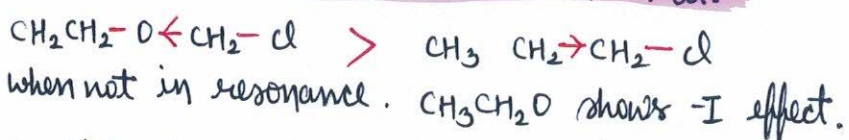 CH₂CH₂-O←CH₂-Cl > CH₃ CH₂→CH₂-Cl
when not in resonance. CH₃CH₂O shows -I effect.